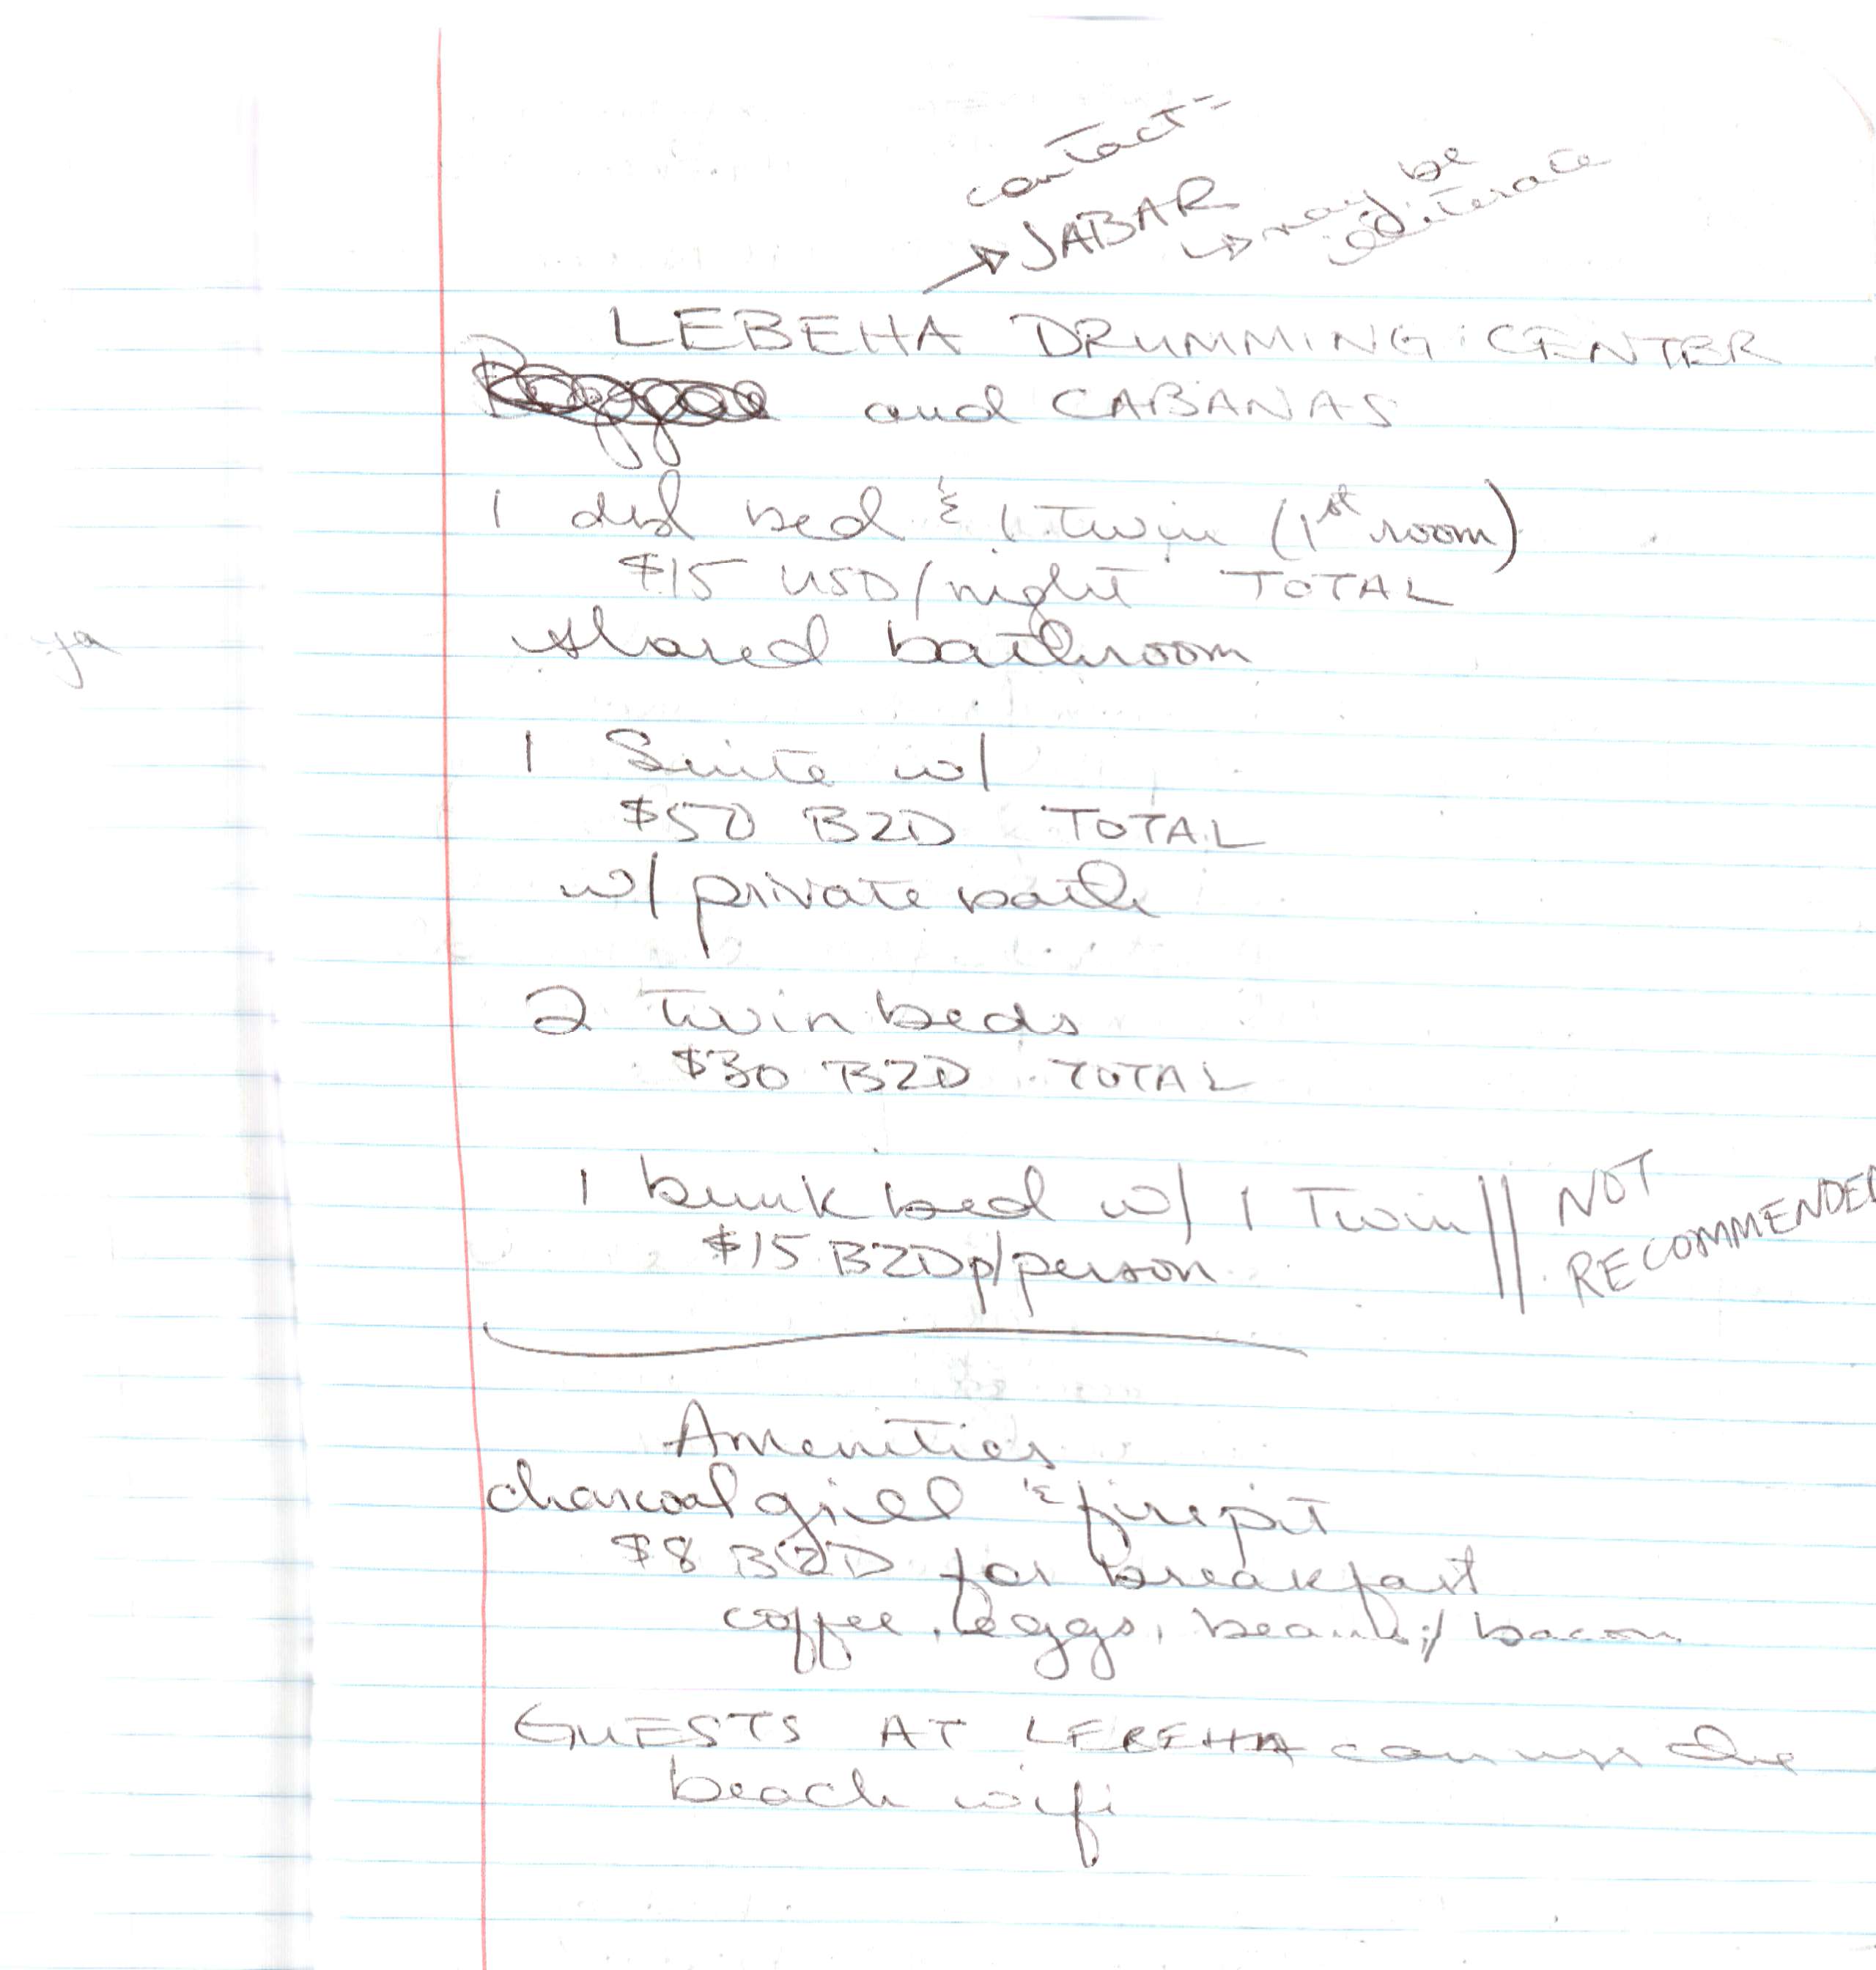 contact =
JABAR → may be illiterate
LEBEHA DRUMMING CENTER
and CABANAS
1 dbl bed & 1 Twin (1st room)
$15 USD/night TOTAL
shared bathroom
ya
1 Suite w/
$50 BZD TOTAL
w/ private bath
2 Twin beds
$30 BZD TOTAL
1 bunk bed w/ 1 Twin || NOT
$15 BZD p/person RECOMMENDED
Amenities
charcoal grill & firepit
$8 BZD for breakfast
coffee, eggs, beans, bacon
GUESTS AT LEBEHA can use the
beach wifi